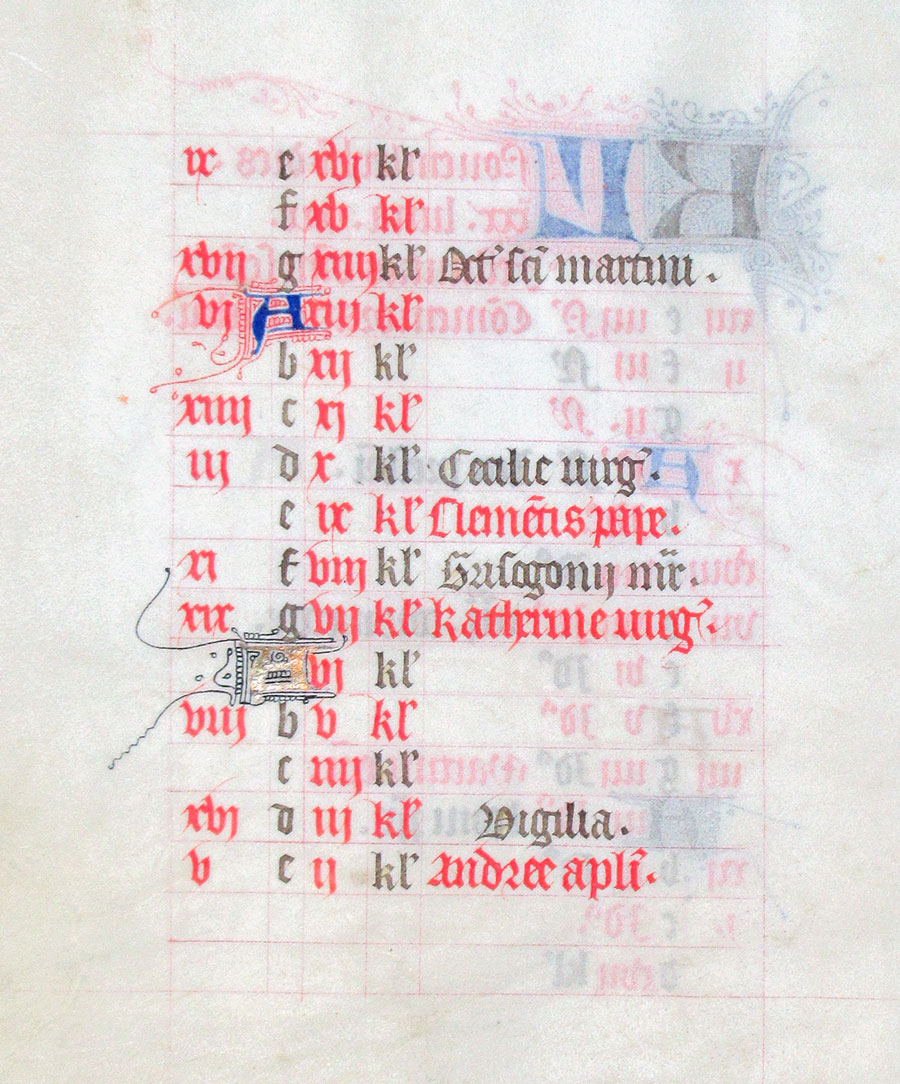 ix e xvj kl'
f xv kl'
xvij g xiiij kl' Oct' sc̄i martini .
vj A xiij kl'
b xij kl'
xiiij c xj kl'
iij d x kl' Cecilie uirg' .
e ix kl' Clemētis pape .
xi f viij kl' Grisogonij mr̄ .
xix g vij kl' Katherine uirg' .
A vj kl'
viij b v kl'
c iiij kl'
xvj d iij kl' Vigilia .
v e ij kl' Andree apl̄i .